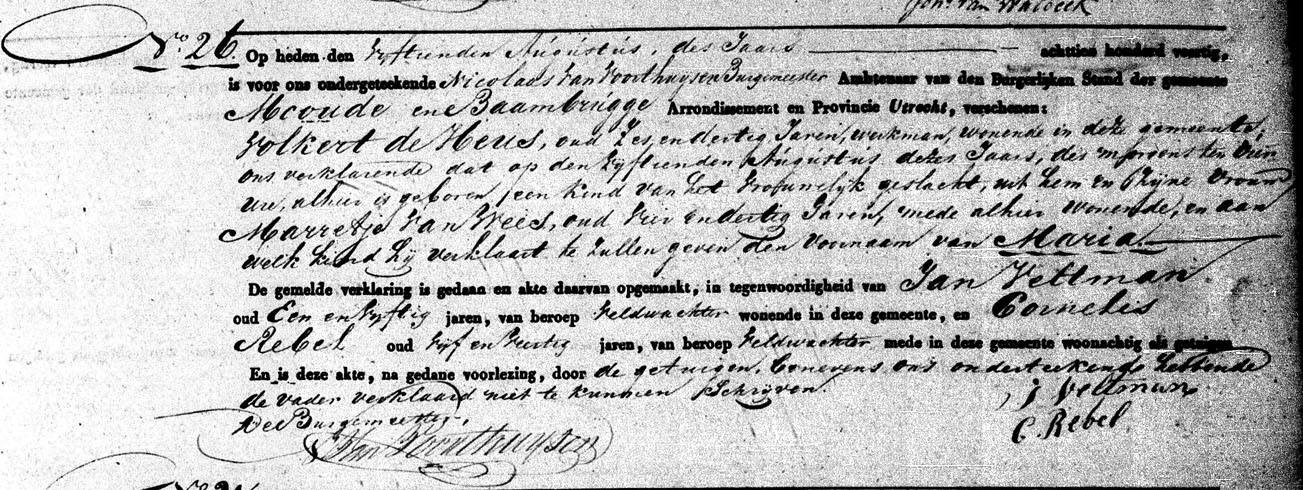 Joh. van Walbeek
No. 26. Op heden den Vyftienden Augustus, des Jaars achttien honderd veertig,
is voor ons ondergeteekende Nicolaas van Voorthuysen Burgemeester Ambtenaar van den Burgerlijken Stand der gemeente
Abcoude en Baambrugge Arrondissement en Provincie Utrecht, verschenen:
Volkert de Heus, oud Zes en dertig Jaren, werkman, wonende in deze gemeente,
ons verklarende dat op den Vyftienden Augustus dezes Jaars, des morgens ten
ure, alhier is geboren, een kind van het Vrouwelyk geslacht, uit hem en Zyne Vrouw
Marretje van Wees, oud Vier en dertig Jaren, mede alhier wonende, en aan
welk kind hy verklaart te zullen geven den Voornaam van Maria.
De gemelde verklaring is gedaan en akte daarvan opgemaakt, in tegenwoordigheid van Jan Veltman
oud Een en Vyftig jaren, van beroep Veldwachter wonende in deze gemeente, en Cornelis
Rebel oud Vyf en Veertig jaren, van beroep Veldwachter mede in deze gemeente woonachtig als getuigen
En is deze akte, na gedane voorlezing, door de getuigen, benevens ons onderteekend, hebbende
de vader verklaard niet te kunnen Schryven.
J Veltman
De Burgemeester,
C. Rebel
van Voorthuysen